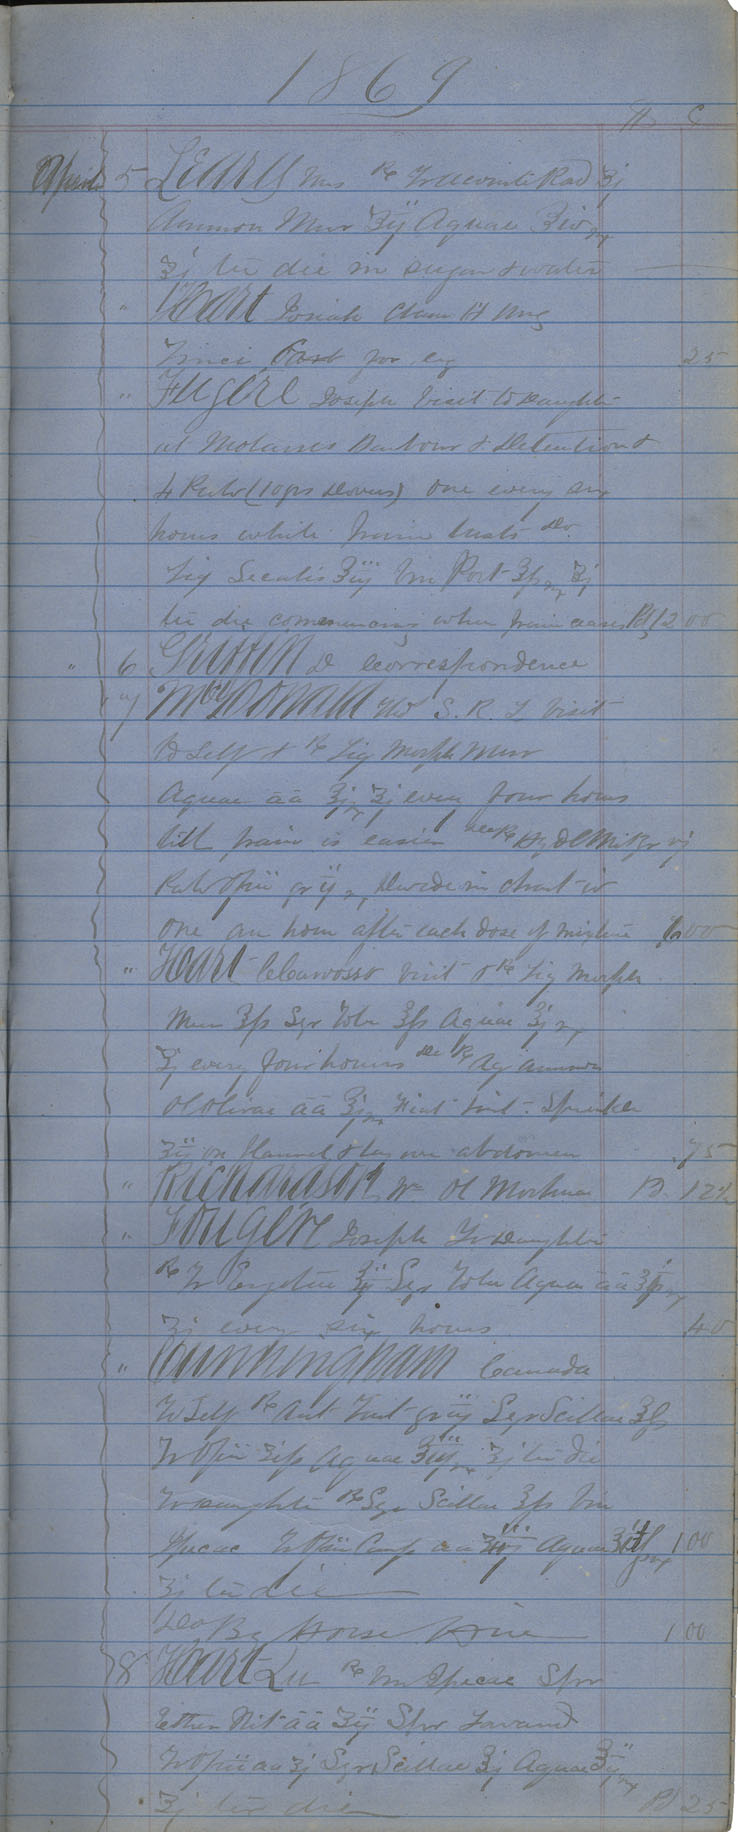 1869
$ c
April 5 Leary Mrs ℞ Tr Aconite Rad ʒj
Ammon Mur ʒij Aquae ℥iv
ʒj ter die in sugar & water
" Heart Josiah Ung
Zinci for eye 25
" Fugére Joseph Visit to Daughter
at Molasses Harbour & Detention &
4 Pulv (10 grs Dovers) one every six
hours while pain lasts Do
Liq Secalis ʒiij Vin Port ℥ss ʒj
ter die commencing when pain ceases Pd 12 00
" 6 Griffin D Correspondence
" 7 McDonald S. R. Visit
to Self & ℞ Liq Morph Mur
Aquae āā ℥j ʒj every four hours
till pain is easier Also ℞ Hyd Mit gr vj
Pulv Opii gr ij Divide in chart iv
One an hour after each dose of mixture 00
" Heart Visit & ℞ Liq Morph
Mur ℥ss Syr Tolu ℥ss Aquae ℥j
ʒj every four hours Also ℞ Aq Ammon
Ol Olivae āā ℥j Fiat Lint. Sprinkle
ʒij on flannel & lay over abdomen .75
" Richardson Wm Ol Morhuae Pd 12½
" Fougére Joseph To Daughter
℞ Tr Ergotae ʒij Syr Tolu Aquae āā ℥ss
ʒj every six hours 40
" Cunningham Canada
To Self ℞ Ant Tart gr iij Syr Scillae ℥ss
Tr Opii ʒiss Aquae ʒj ter die
To Daughter ℞ Syr Scillae ℥ss Vin
Ipecac Tr Opii Camp āā Aquae 1 00
ʒj ter die
Also By Horse Hire 1 00
8 Heart ℞ Vin Ipecac Spr
Ether Nit āā ʒij Spr Lavand
Tr Opii āā ʒj Syr Scillae ℥j Aquae ℥ij
ʒj ter die Pd 25